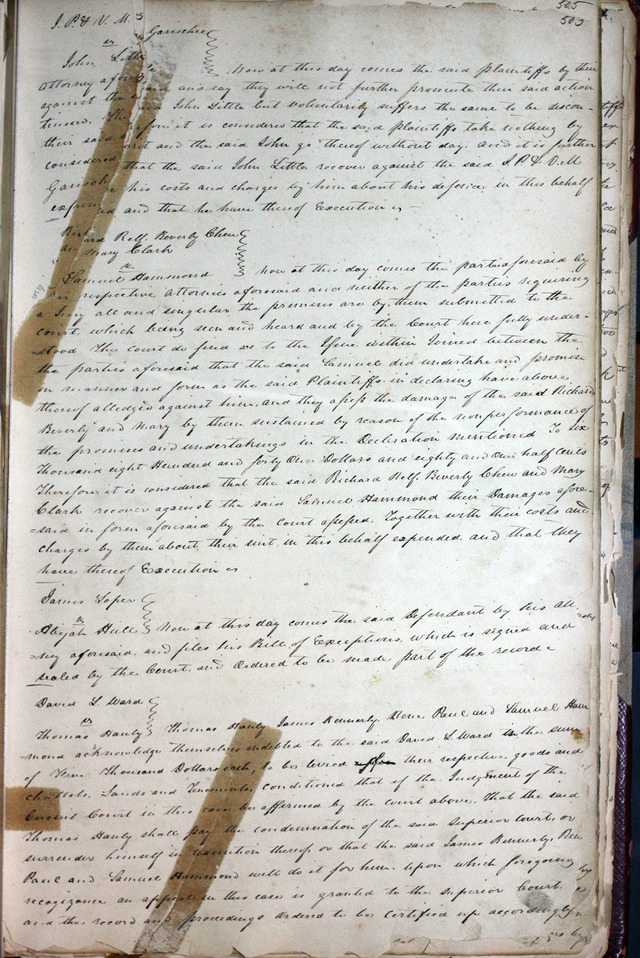 505
503
J. P. & V. M. Garischee
vs
John Little
Now at this day comes the said plaintiffs by their
Attorney aforesaid and say they will not further prosecute their said action
against the said John Little but voluntarily suffers the same to be discon-
tinued. Therefore it is considered that the said plaintiffs take nothing by
their said writ and the said John go thereof without day. and it is further
considered that the said John Little recover against the said J. P. & V. M
Garischee his costs and charges by him about his defence in this behalf
expended and that he have thereof Execution
Richard Relf. Beverly Chew
and Mary Clark
vs
Samuel Hammond
Now at this day comes the parties aforesaid by
their respective Attornies aforesaid and neither of the parties requiring
a Jury all and singular the premises are by them submitted to the
court, which being seen and heard and by the Court here fully under-
=stood The court do find as to the Issue within Joined between the
the parties aforesaid that the said Samuel did undertake and promise
in manner and form as the said Plaintiffs in declaring have above
thereof alledged against him. and they assess the damages of the said Richard
Beverly and Mary by them sustained by reason of the nonperformance of
the promises and undertakings in the Declaration mentioned To Six
Thousand eight Hundred and forty One Dollars and eighty and One half cents
Therefore it is considered that the said Richard Relf. Beverly Chew and Mary
Clark recover against the said Samuel Hammond their Damages afore-
=said in form aforesaid by the Court assessed. Together with their costs and
charges by them about their suit in this behalf expended and that they
have thereof Execution
James Loper
vs
Abijah Hull
Now at this day comes the said Defendant by his Attor-
=ney aforesaid, and files his Bill of Exceptions, which is signed and
sealed by the Court, and Ordered to be made part of the record
David L Ward
vs
Thomas Hanly
Thomas Hanly James Kennerly Rene Paul and Samuel Ham
mond acknowledge themselves indebted to the said David L Ward in the sum
of Five Thousand Dollars each, to be levied of their respective goods and
chattels, Lands and Tenements, conditioned that if the Judgment of the
Circuit Court in this case be affirmed by the court above. that the said
Thomas Hanly shall pay the condemnation of the said Superior court, or
surrender himself in execution thereof, or that the said James Kennerly, Rene
Paul and Samuel Hammond will do it for him upon which foregoing
recogizance an appeal in this case is granted to the Superior Court
and the record and proceedings ordered to be certified up accordingly